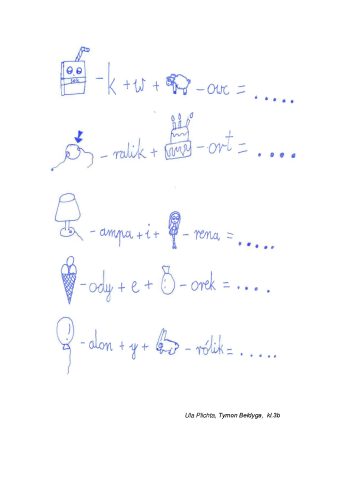 - k + w + - owc = .....
- ralik + - ort = ....
- ampa + i + - rena = .....
- ody + e + - orek = ....
- alon + y + - rólik = .....
Ula Plichta, Tymon Beklyga, kl.3b